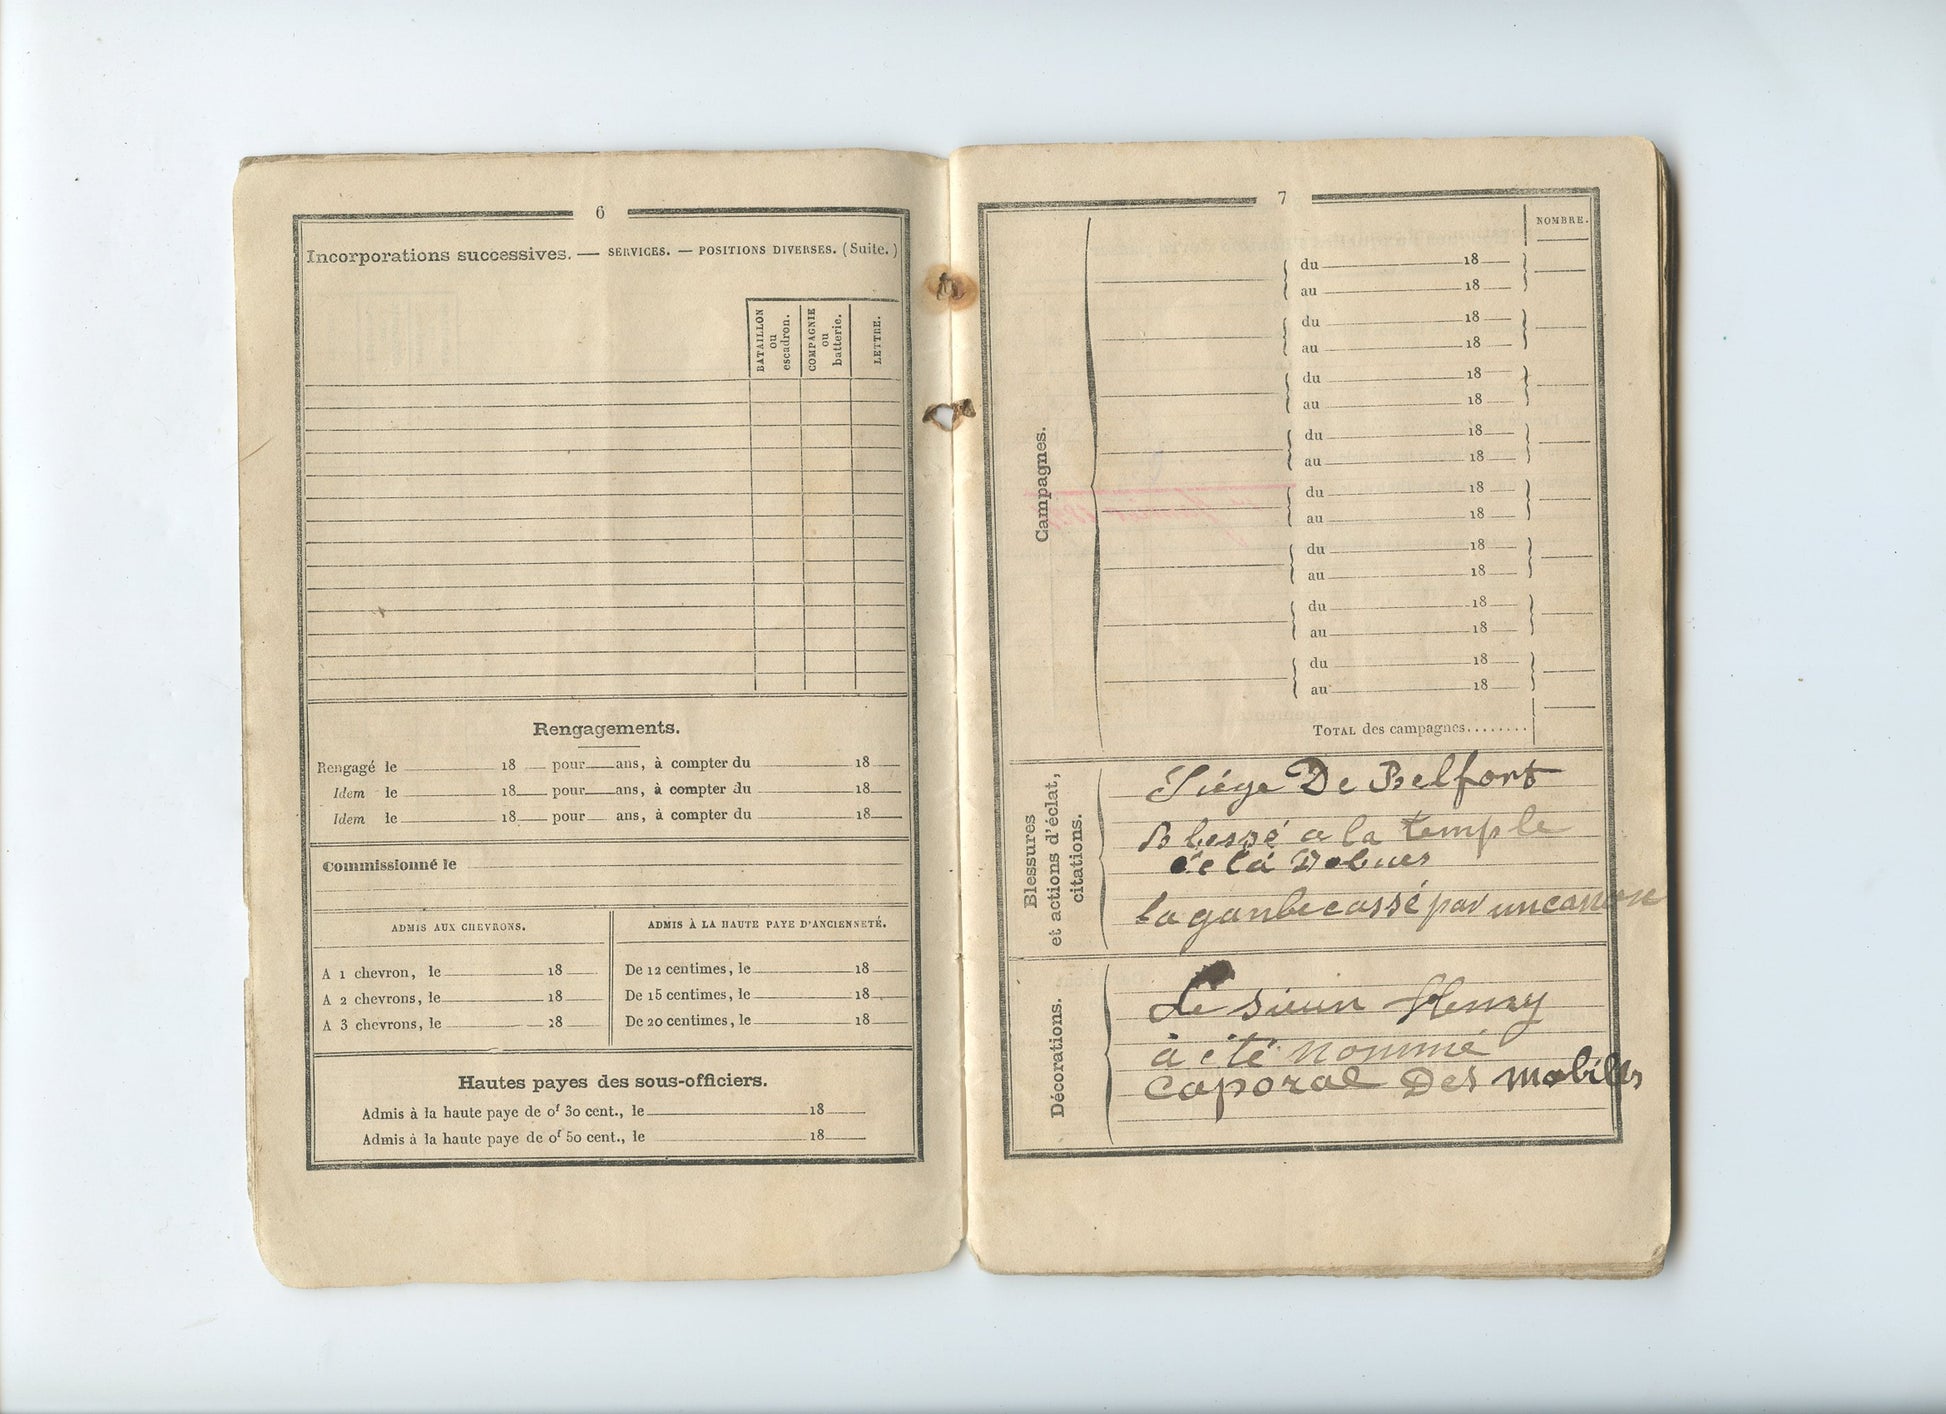 6
Incorporations successives. — SERVICES. — POSITIONS DIVERSES. (Suite.)
BATAILLON ou escadron.
COMPAGNIE ou batterie.
LETTRE.
Rengagements.
Rengagé le 18 pour ans, à compter du 18
Idem le 18 pour ans, à compter du 18
Idem le 18 pour ans, à compter du 18
Commissionné le
ADMIS AUX CHEVRONS.
A 1 chevron, le 18
A 2 chevrons, le 18
A 3 chevrons, le 18
ADMIS À LA HAUTE PAYE D'ANCIENNETÉ.
De 12 centimes, le 18
De 15 centimes, le 18
De 20 centimes, le 18
Hautes payes des sous-officiers.
Admis à la haute paye de 0f 30 cent., le 18
Admis à la haute paye de 0f 50 cent., le 18
7
NOMBRE.
Campagnes.
du 18
au 18
du 18
au 18
du 18
au 18
du 18
au 18
du 18
au 18
du 18
au 18
du 18
au 18
du 18
au 18
TOTAL des campagnes........
Blessures
et actions d'éclat,
citations.
Siége De Belfort
Blessé a la temple
la ganbe cassé par un canon
Décorations.
Le sieur Henry
à été nommé
caporal Des mobiles